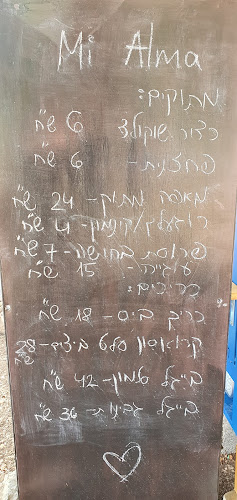 Mi Alma
מתוקים:
כדור שוקולד 6 ש״ח
פחזנית - 6 ש״ח
מאפה מתוק - 24 ש״ח
רוגלך/קינמון - 4 ש״ח
פרוסת בחושה - 7 ש״ח
עוגייה - 15 ש״ח
כריכים:
כריך ביס - 18 ש״ח
קרואסון סלט ביצים - 28 ש״ח
בייגל סלמון - 42 ש״ח
בייגל גבינות - 36 ש״ח